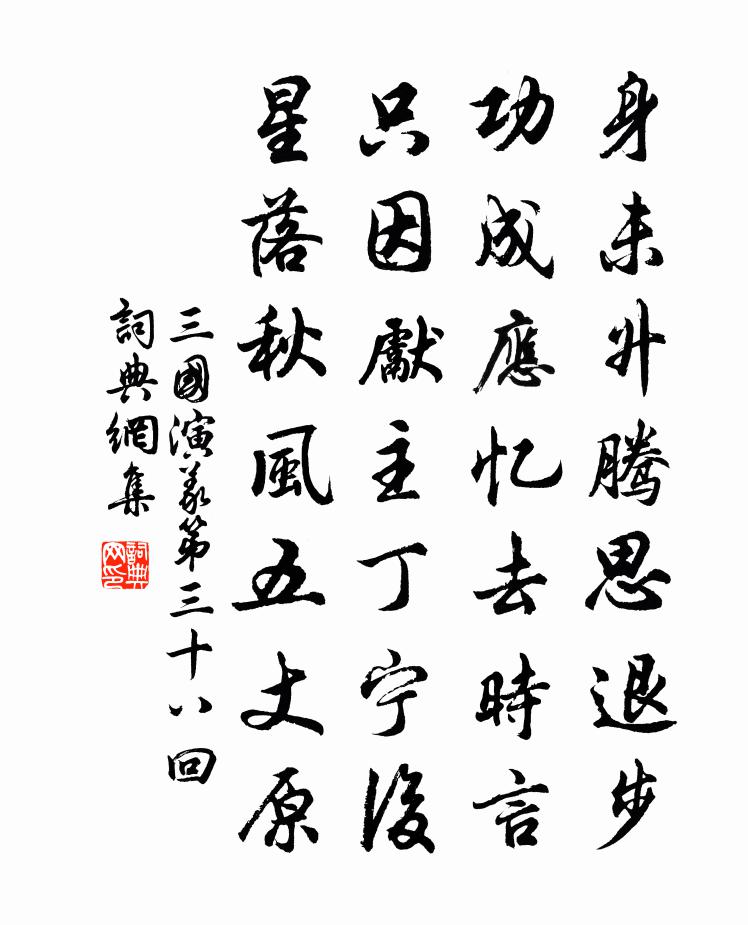 身未升腾思退步
功成應忆去時言
只因獻主丁宁後
星落秋風五丈原
三國演義第三十八回
詞典網集
詞典网印